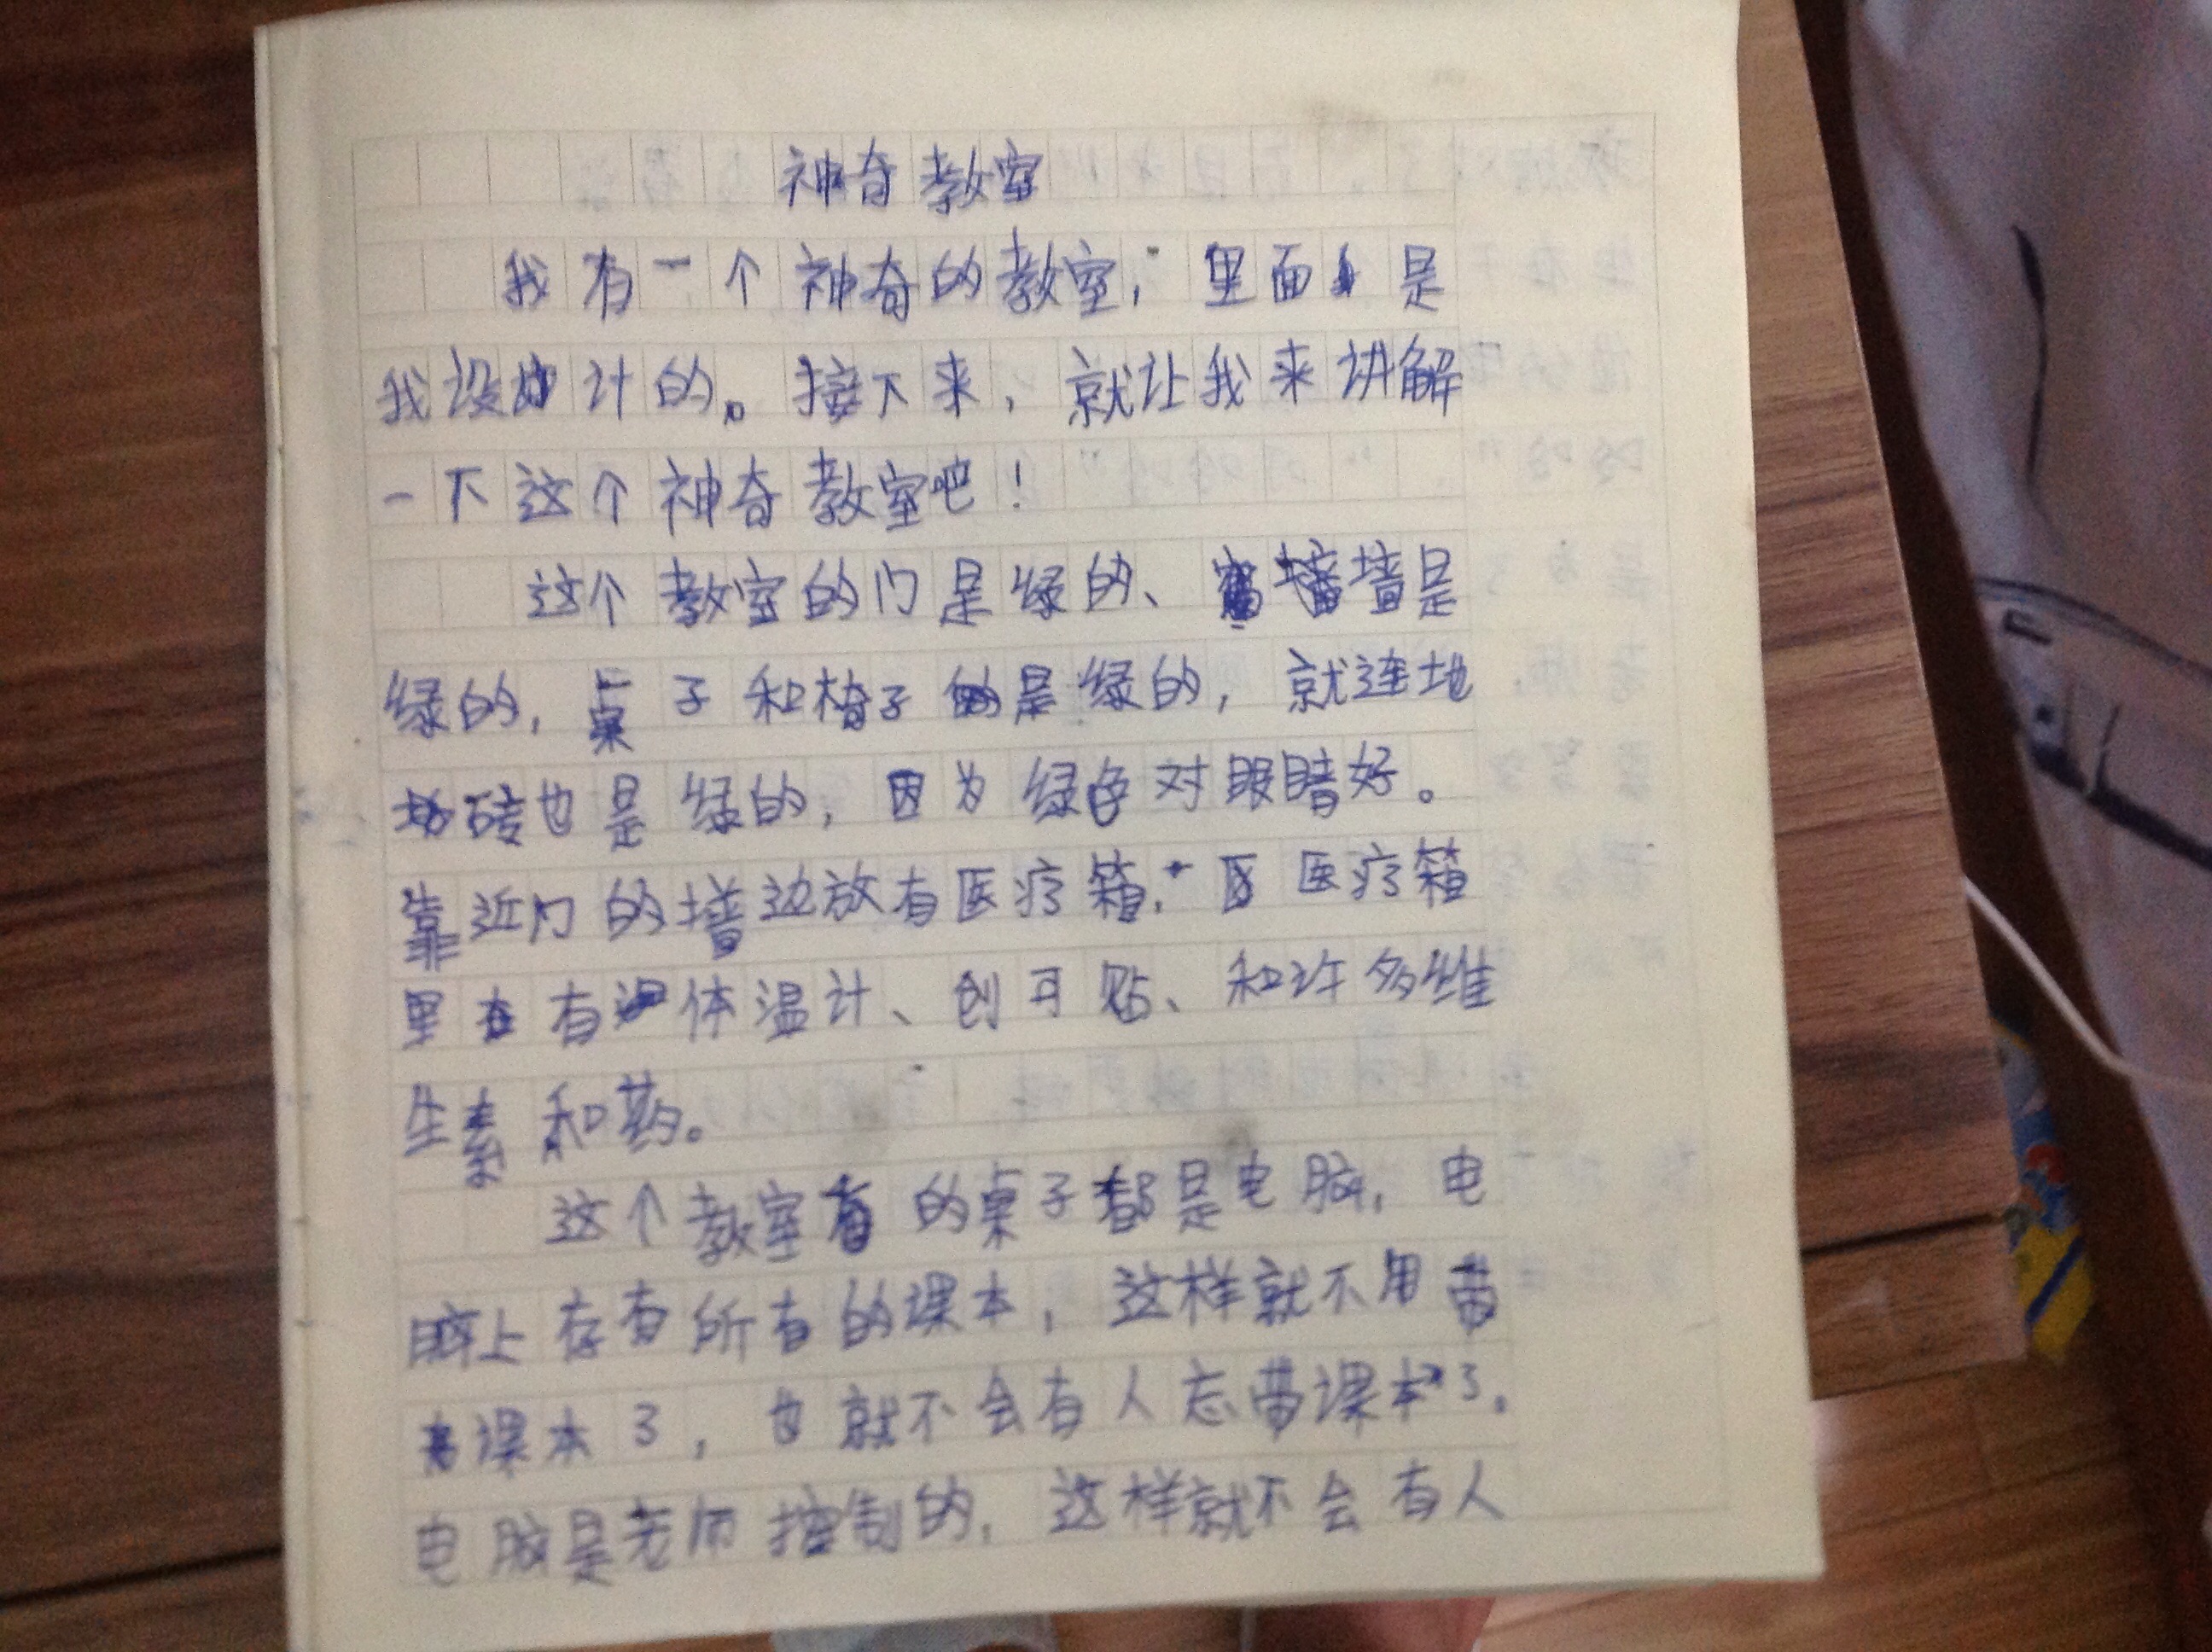 神奇教室
我有一个神奇的教室,里面是
我设计的。接下来,就让我来讲解
一下这个神奇教室吧!
这个教室的门是绿的、墙是
绿的,桌子和椅子是绿的,就连地
砖也是绿的,因为绿色对眼睛好。
靠近门的墙边放有医疗箱,医疗箱
里有体温计、创可贴、和许多维
生素和药。
这个教室的桌子都是电脑,电
脑上存有所有的课本,这样就不用带
课本了,也就不会有人忘带课本了。
电脑是老师控制的,这样就不会有人